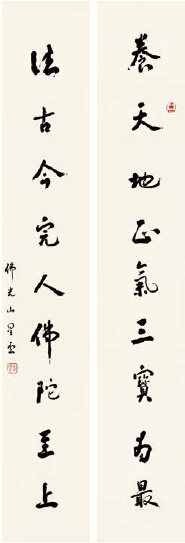 養天地正氣三寶為最
法古今完人佛陀至上
佛光山星雲